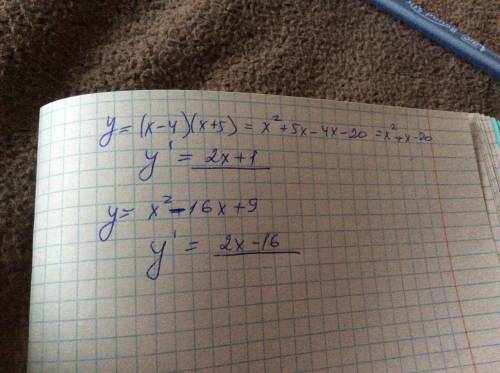 y = (x-4)(x+5) = x²+5x-4x-20 = x²+x-20
y' = 2x+1
y = x²-16x+9
y' = 2x-16